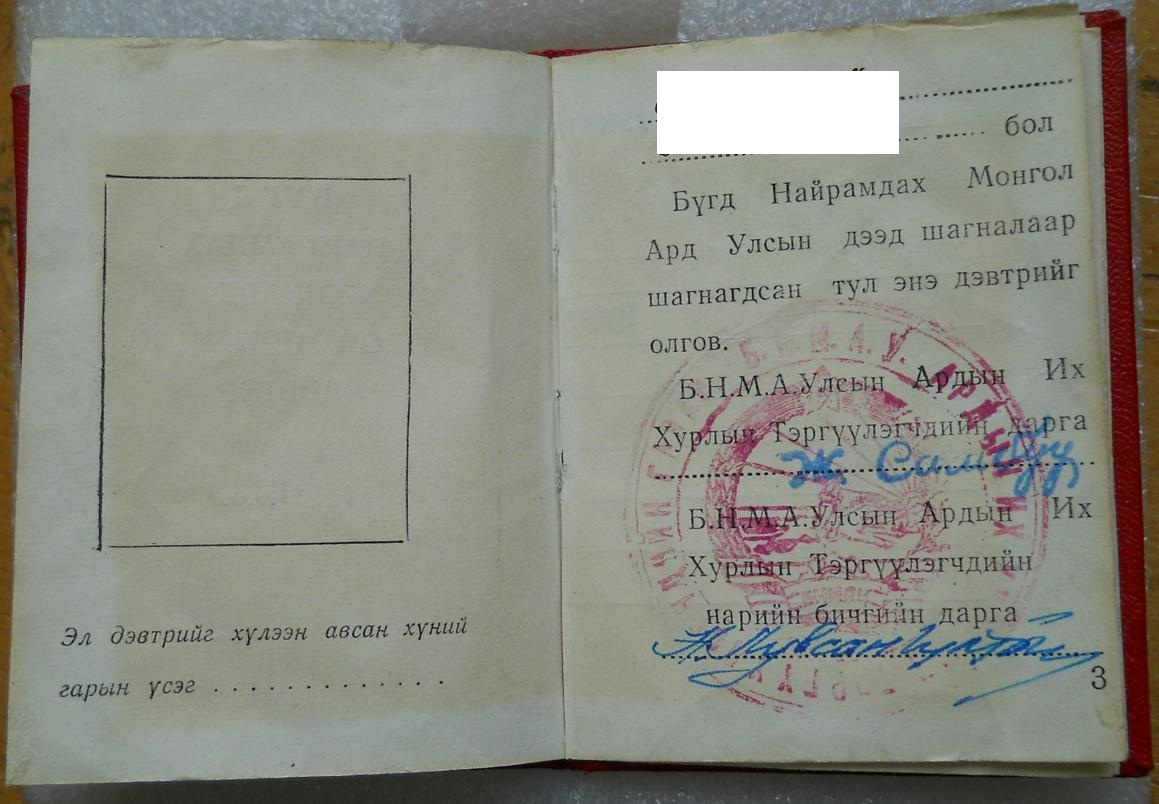 Эл дэвтрийг хүлээн авсан хүний
гарын үсэг . . . . . . . . . . . . .
бол
Бүгд Найрамдах Монгол
Ард Улсын дээд шагналаар
шагнагдсан тул энэ дэвтрийг
олгов.
Б.Н.М.А.Улсын Ардын Их
Хурлын Тэргүүлэгчдийн дарга
Ж. Самбуу
Б.Н.М.А.Улсын Ардын Их
Хурлын Тэргүүлэгчдийн
нарийн бичгийн дарга
3
Б.Н.М.А.У. АРДЫН ИХ